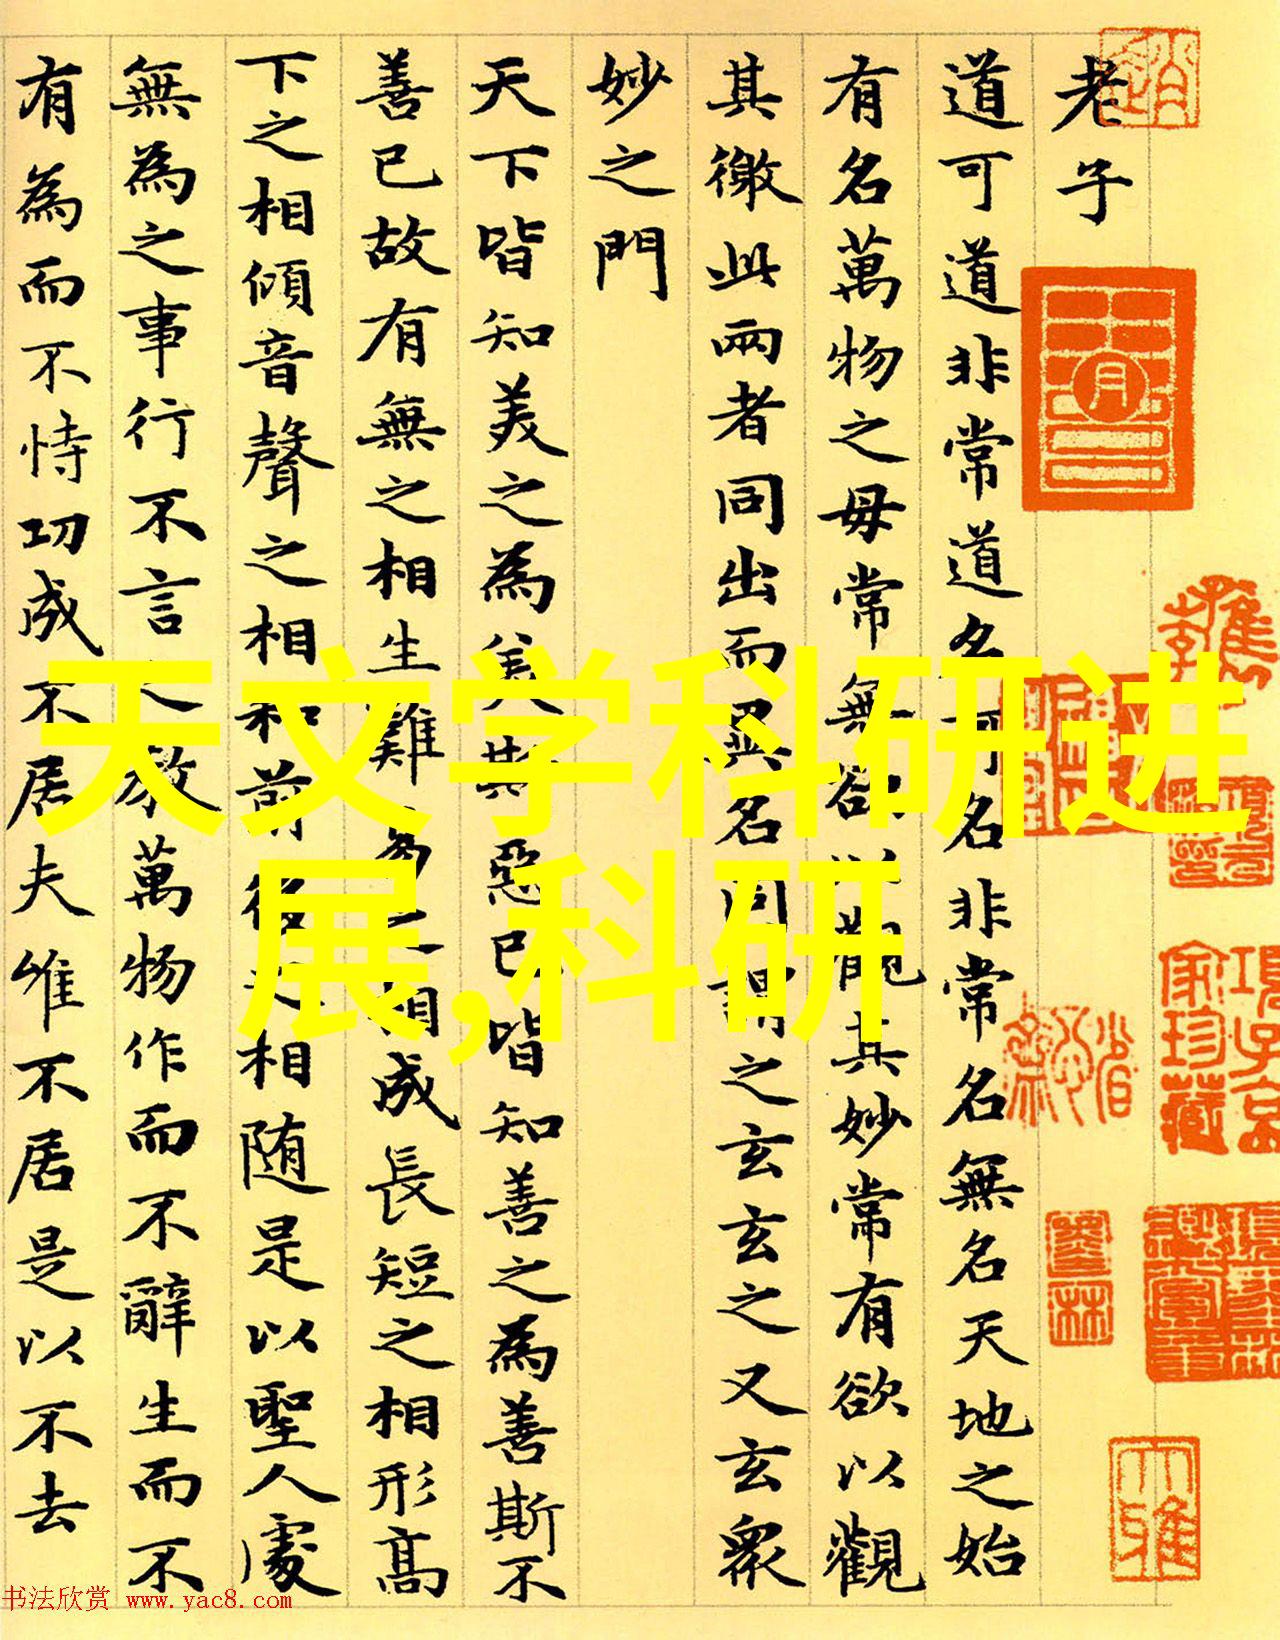 老子
道可道非常道名可名非常名無名天地之始
有名萬物之母常無欲以觀其妙常有欲以觀
其徼此兩者同出而異名同謂之玄玄之又玄衆
妙之門
天下皆知美之為美斯惡已皆知善之為善斯不
善已故有無之相生難易之相成長短之相形高
下之相傾音聲之相和前後之相随是以聖人處
無為之事行不言之教萬物作而不辭生而不
有為而不恃功成不居夫唯不居是以不去
天文学科研进
展,科研
项子京
家珍藏
书法欣赏 www.yac8.com